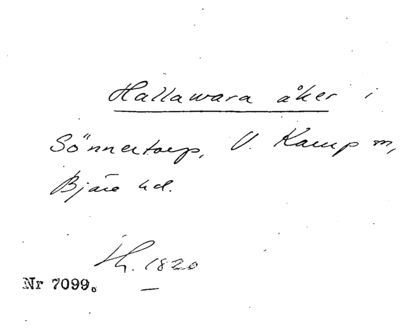 Hallawara åker i
Sönnertorp, V. Karup sn,
Bjäre hd.
Th. 1820
Nr 7099.